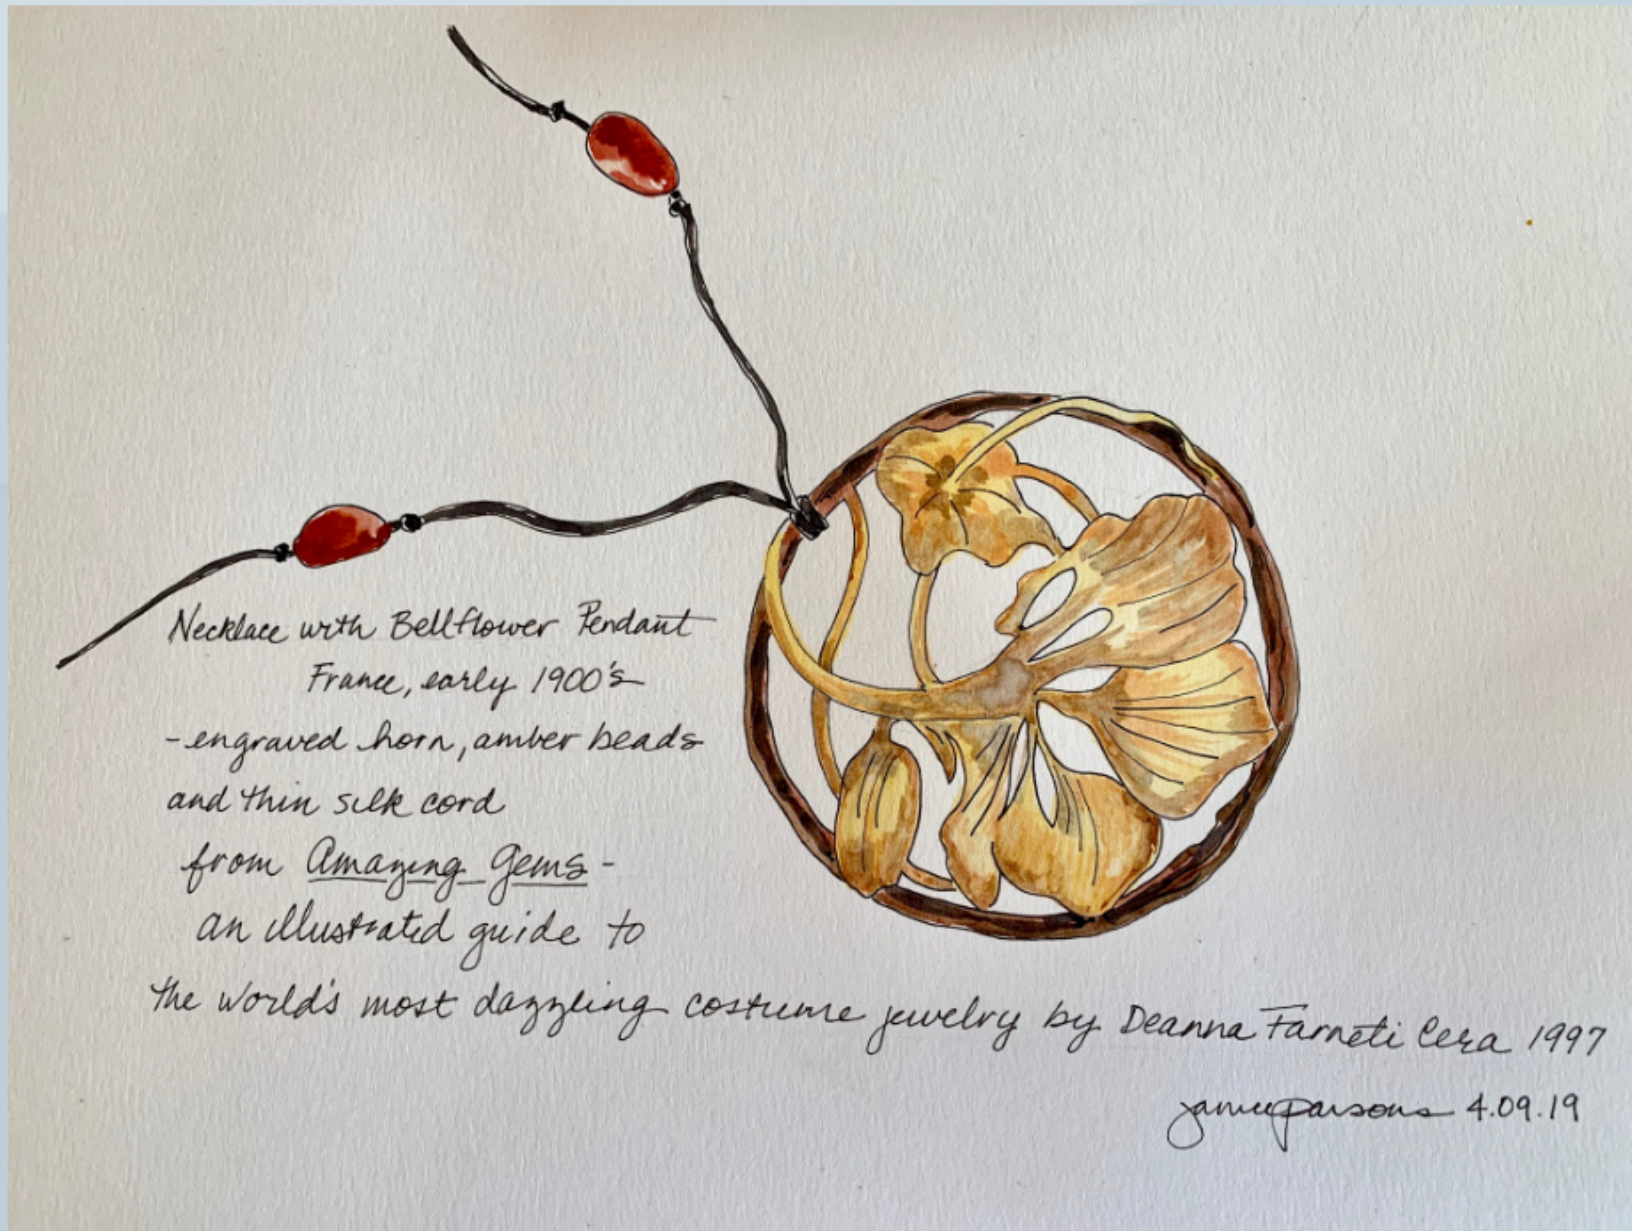 Necklace with Bellflower Pendant
France, early 1900's
- engraved horn, amber beads
and thin silk cord
from Amazing Gems -
an illustrated guide to
the world's most dazzling costume jewelry by Deanna Farneti Cera 1997
parsons 4.09.19